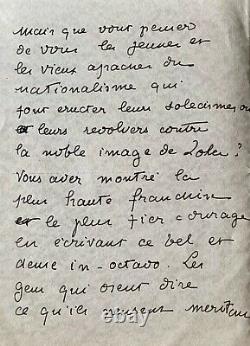 mais que vont penser
de vous les jeunes et
les vieux apaches du
nationalisme qui
font eructer leurs solecismes ou
leurs revolvers contre
la noble image de Zola?
Vous avez montré la
plus haute franchise
et le plus fier courage
en écrivant ce bel et
dense in-octavo. Les
gens qui osent dire
ce qu'ils pensent meritent
ebay